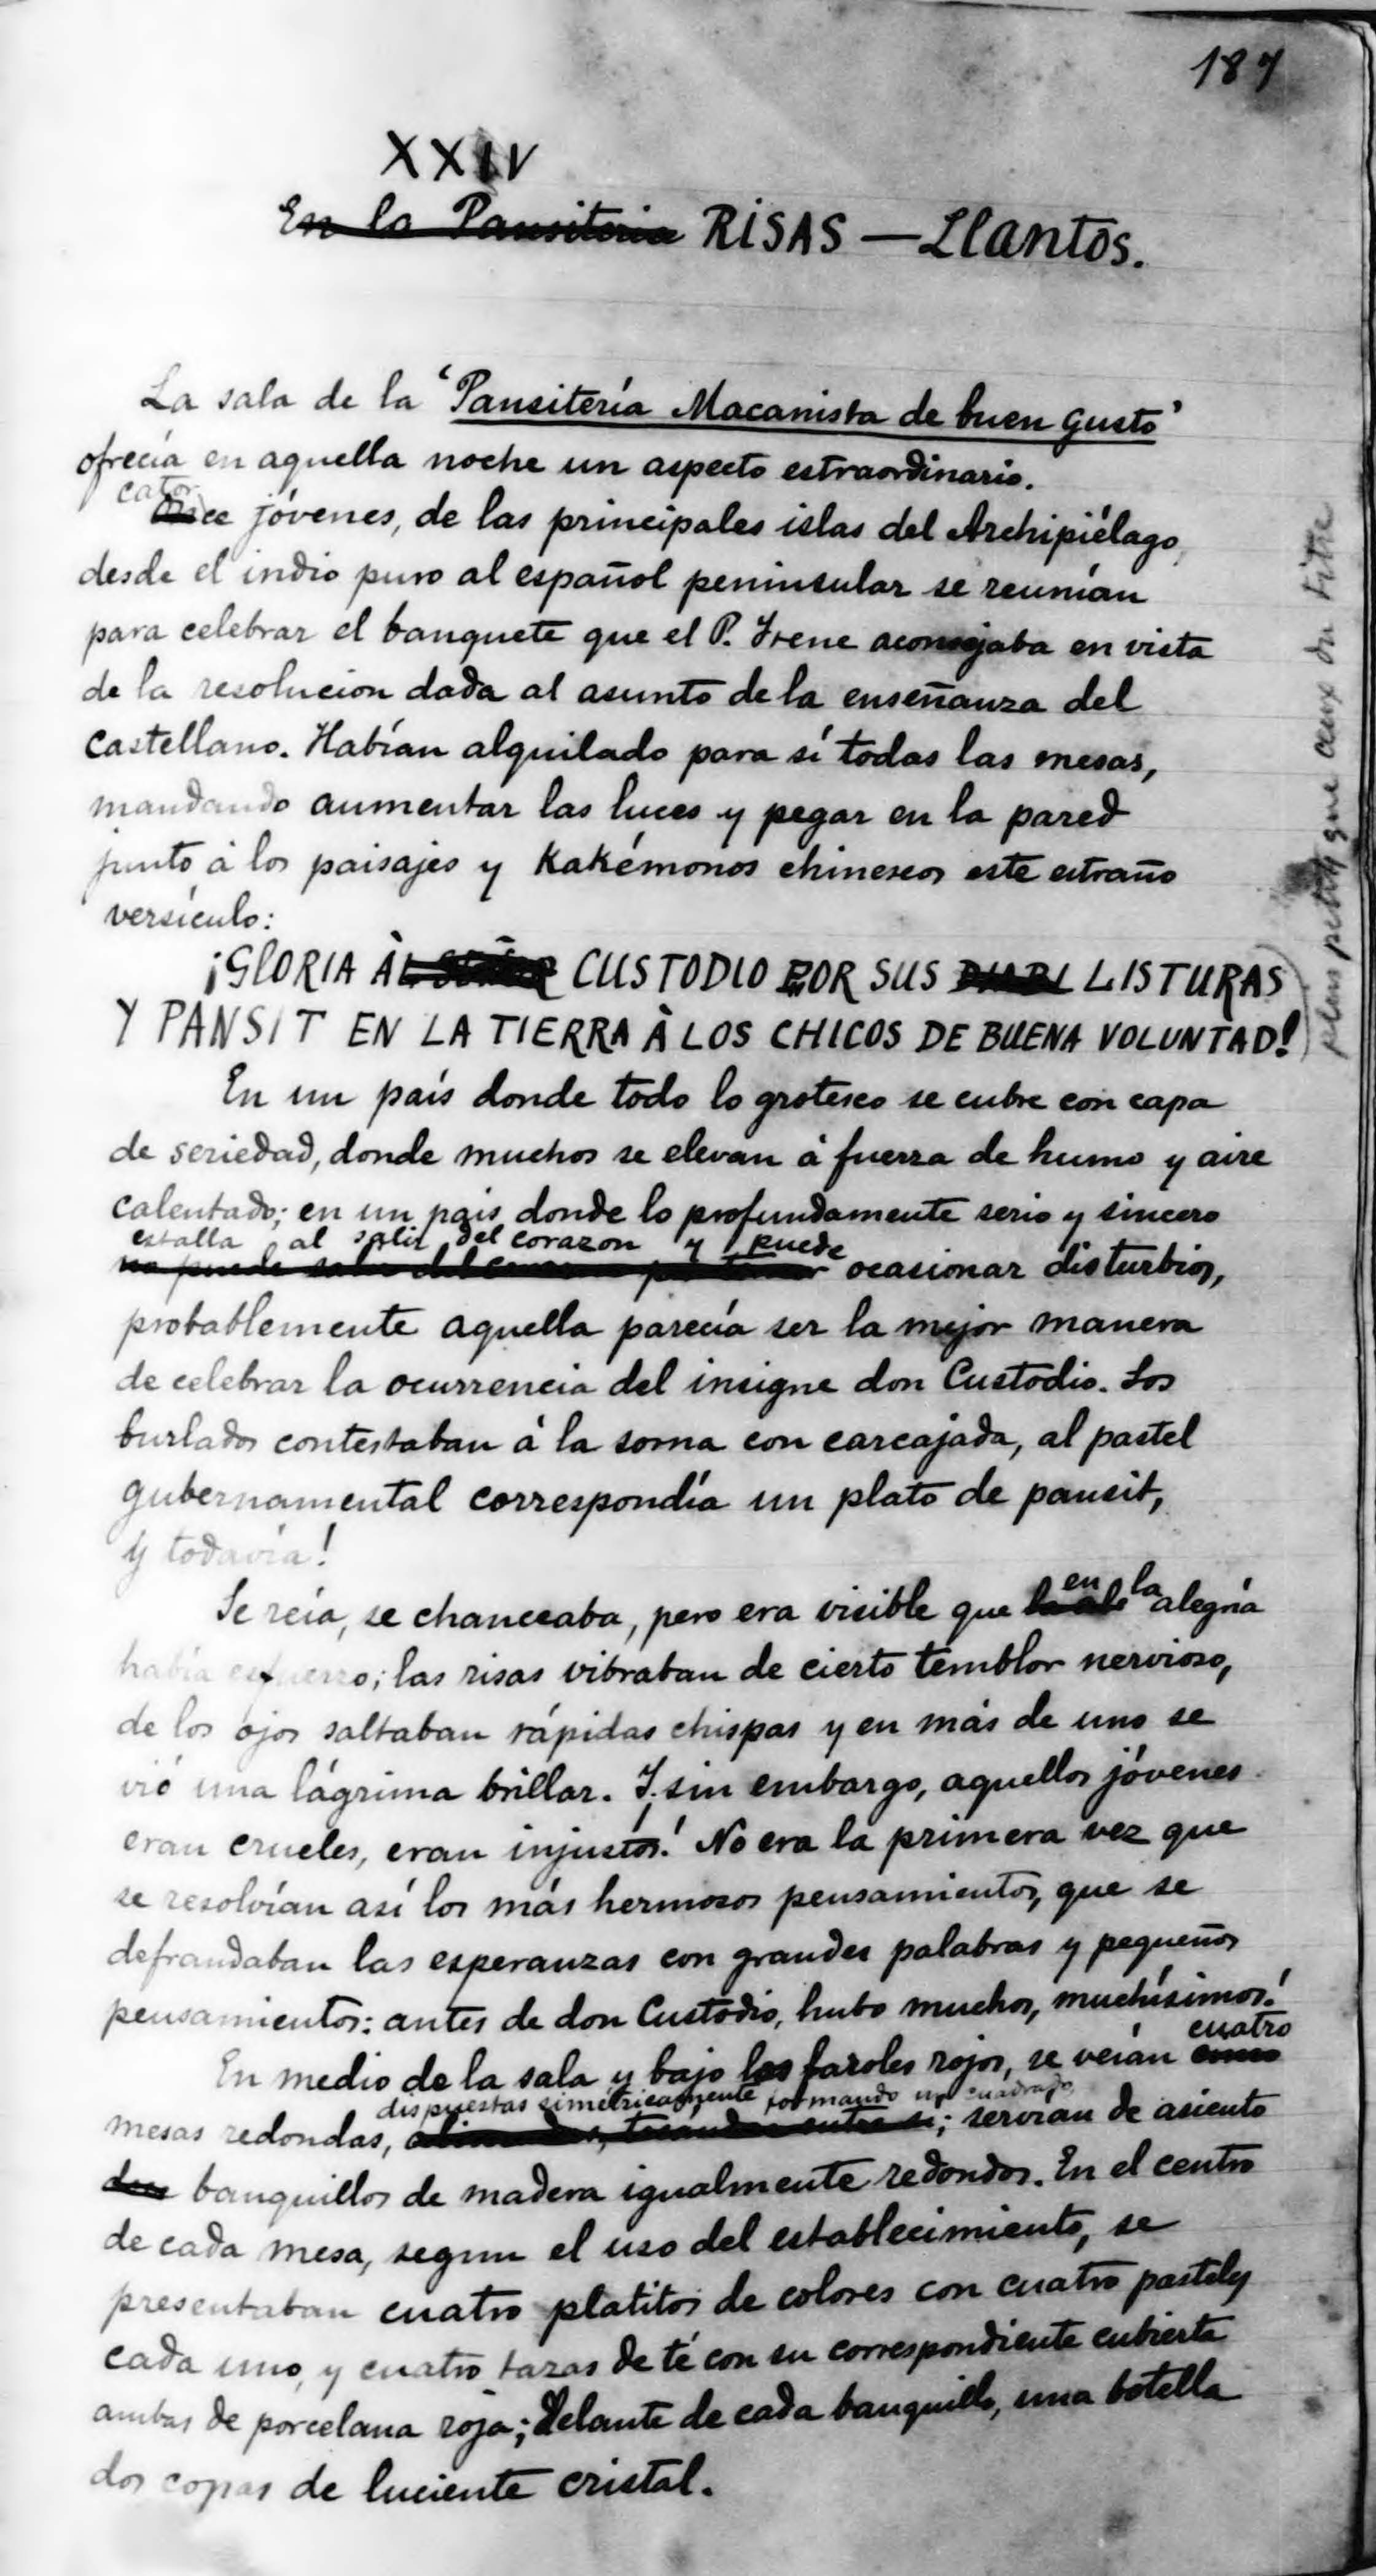 187
XXIV
En la Pansiteria RISAS — Llantos.
La sala de la 'Pansitería Macanista de buen gusto'
ofrecía en aquella noche un aspecto estraordinario.
cator
Once jóvenes, de las principales islas del Archipiélago,
desde el indio puro al español peninsular se reunían
para celebrar el banquete que el P. Irene aconsejaba en vista
de la resolucion dada al asunto de la enseñanza del
castellano. Habían alquilado para sí todas las mesas,
mandando aumentar las luces y pegar en la pared
junto á los paisajes y Kakémonos chinescos este estraño
versículo:
¡GLORIA À CUSTODIO POR SUS LISTURAS
Y PANSIT EN LA TIERRA À LOS CHICOS DE BUENA VOLUNTAD!
plus petit que ceux du titre
En un país donde todo lo grotesco se cubre con capa
de seriedad, donde muchos se elevan á fuerza de humo y aire
calentado; en un pais donde lo profundamente serio y sincero
estalla al salir del corazon y puede
ocasionar disturbios,
probablemente aquella parecía ser la mejor manera
de celebrar la ocurrencia del insigne don Custodio. Los
burlados contestaban á la sorna con carcajada, al pastel
gubernamental correspondía un plato de pansit,
y todavía!
en la
Se reía, se chanceaba, pero era visible que alegría
había esfuerzo; las risas vibraban de cierto temblor nervioso,
de los ojos saltaban rápidas chispas y en más de uno se
vió una lágrima brillar. Y sin embargo, aquellos jóvenes
eran crueles, eran injustos! No era la primera vez que
se resolvían así los más hermosos pensamientos, que se
defraudaban las esperanzas con grandes palabras y pequeños
pensamientos: antes de don Custodio, hubo muchos, muchísimos!
cuatro
En medio de la sala y bajo los faroles rojos, se veían
dispuestas simetricamente formando un cuadrado
mesas redondas, ; servian de asiento
banquillos de madera igualmente redondos. En el centro
de cada mesa, segun el uso del establecimiento, se
presentaban cuatro platitos de colores con cuatro pasteles
cada uno, y cuatro tazas de té con su correspondiente cubierta
ambas de porcelana roja; delante de cada banquillo, una botella
dos copas de luciente cristal.